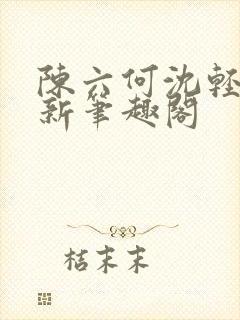 陳六何沈輕
新筆趣閣
桔末末